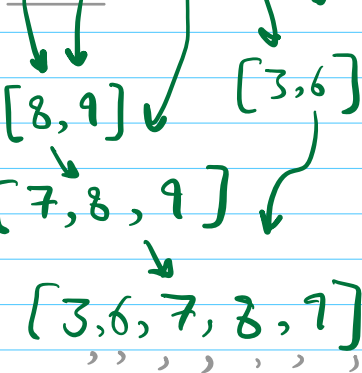 [8,9]
[3,6]
[7,8,9]
[3,6,7,8,9]
, , , , , , ,